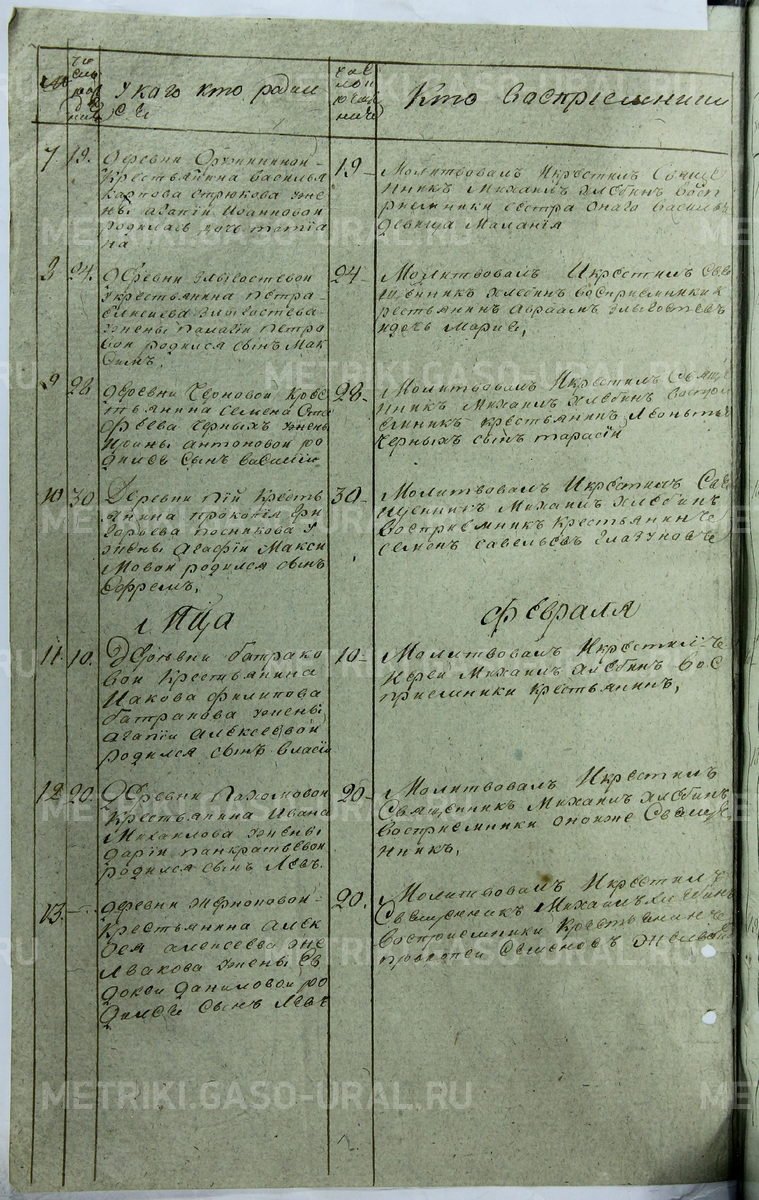 числа рож дения
У каго кто родил
ся
Кто Воспрiемники
7 19. деревни
крестьянина василья
карпова стрюкова жен
ны агапiи Иоанновой
родилась дочь татiа
на
19 Молитвовалъ Икрестилъ Свяще
нникъ Михаилъ Хлебинъ Восп
рiемники сестра онаго василья
девица Маланiя
8 24. Деревни
Укрестьянина петра
женны палагiи петро
вой родился сынъ Мак
симъ,
24 Молитвовалъ Икрестилъ Свя
щенникъ Хлебинъ восприемники к
рестьянинъ авраамъ
идочь Марье,
9 28 деревни Черновой крес
тьянина семена
Черныхъ жены
Ирины антоновой ро
дился сынъ василiи
28 Молитвовалъ Икрестилъ Свяще
нникъ Михаилъ Хлебинъ воспри
емникъ крестьянинъ Леонтья
Черныхъ сынъ тарасiи
10 30 Деревни тiй Кресть
янина прокопiя гри
горьева посникова У
жены Агафiи Макси
Мовой родился сынъ
Ефремъ,
30 Молитвовалъ Икрестилъ Свя
щенникъ Михаилъ Хлебинъ
Восприемникъ Крестьянинъ
семенъ савельевъ глазуновъ
Мца февраля
11 10. Деревни батрако
вой Крестьянина
Иакова филипова
батракова жены
агапiи алексеевой
родился сынъ власiи
10 Молитвовалъ Икрестилъ
Иерей Михаилъ Хлебинъ Вос
приемники крестьянинъ,
12 20. Деревни пахомовой
Крестьянина Ивана
Михаилова жены
дарiи панкратьевой
родился сынъ Левъ.
20 Молитвовалъ Икрестилъ
Священникъ Михаилъ Хлебинъ
Восприемники онже Свяще
нникъ.
13. деревни
крестьянина алек
сея алексеева же
лвакова жены Ев
докеи даниловой ро
дился сынъ Левъ
20. Молитвовалъ Икрестилъ
Священникъ Михаилъ Хлебинъ
восприемники Крестьянинъ
прокопей Семеновъ
METRIKI.GASO-URAL.RU